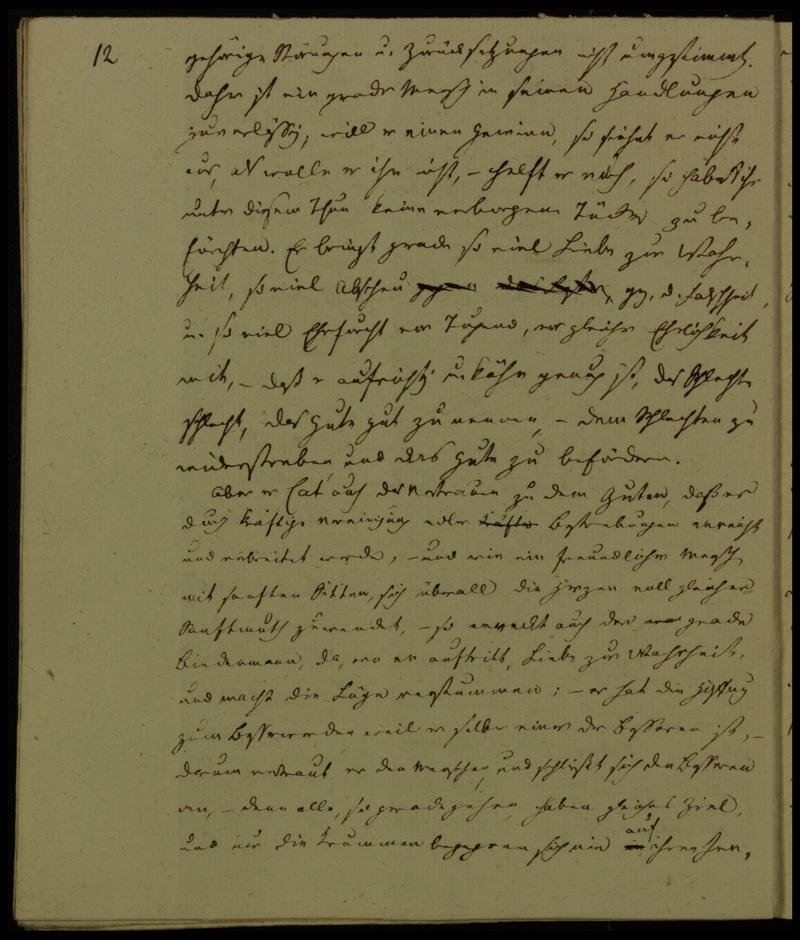 12
gehörige Störungen u. Zurücksetzungen nicht umgestimmt.
Daher ist ein grader Mensch in seinen Handlungen
zuverlässig, will er einen Gewinn, so sieht er nicht
aus, als wolle er ihn nicht, – hilft er euch, so habt ihr
unter diesem Thun keine verborgene Tücke zu be-
fürchten. Er bringt grade so viel Liebe zur Wahr-
heit, so viel Abscheu gegen d. Falschheit,
u. so viel Ehrfurcht vor Tugend, vor gleicher Ehrlichkeit
mit, – daß er aufrichtig u. kühn genug ist, das Schlechte
schlecht, das Gute gut zu nennen, – dem Schlechten zu
widerstreben und das Gute zu befördern.
Aber er hat auch das Vertrauen zu dem Guten, daß es
durch kräftige Vereinigung edler Kräfte Bestrebungen erreicht
und verbreitet werde, – und wie ein freundlicher Mensch
mit sanften Sitten, sich überall die Herzen voll gleicher
Sanftmuth zuwendet, – so erweckt auch der grade
Biedermann, da, wo er auftritt, Liebe zur Wahrheit,
und macht die Lüge verstummen; – er hat die Hoffnung
zum Besserwerden weil er selber einer der Besseren ist, –
darum vertraut er den Menschen, und schließt sich den Besseren
an, – denn alle, die gerade gehen, haben gleiches Ziel,
und nur die Krummen begegnen sich nie auf ihren Irr-